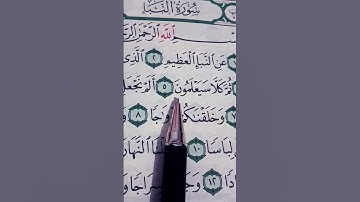 سُورَةُ النَّبَإِ
ـمِ اللَّهِ الرَّحْمَٰنِ الرَّ
عَنِ النَّبَإِ الْعَظِيمِ ٢ الَّذِي
ثُمَّ كَلَّا سَيَعْلَمُونَ ٥ أَلَمْ نَجْعَلِ
٧ وَخَلَقْنَاكُمْ أَزْوَاجًا ٨ وَ
لِبَاسًا ١٠ وَجَعَلْنَا النَّهَارَ
دًا ١٢ وَجَعَلْنَا سِرَاجًا وَ